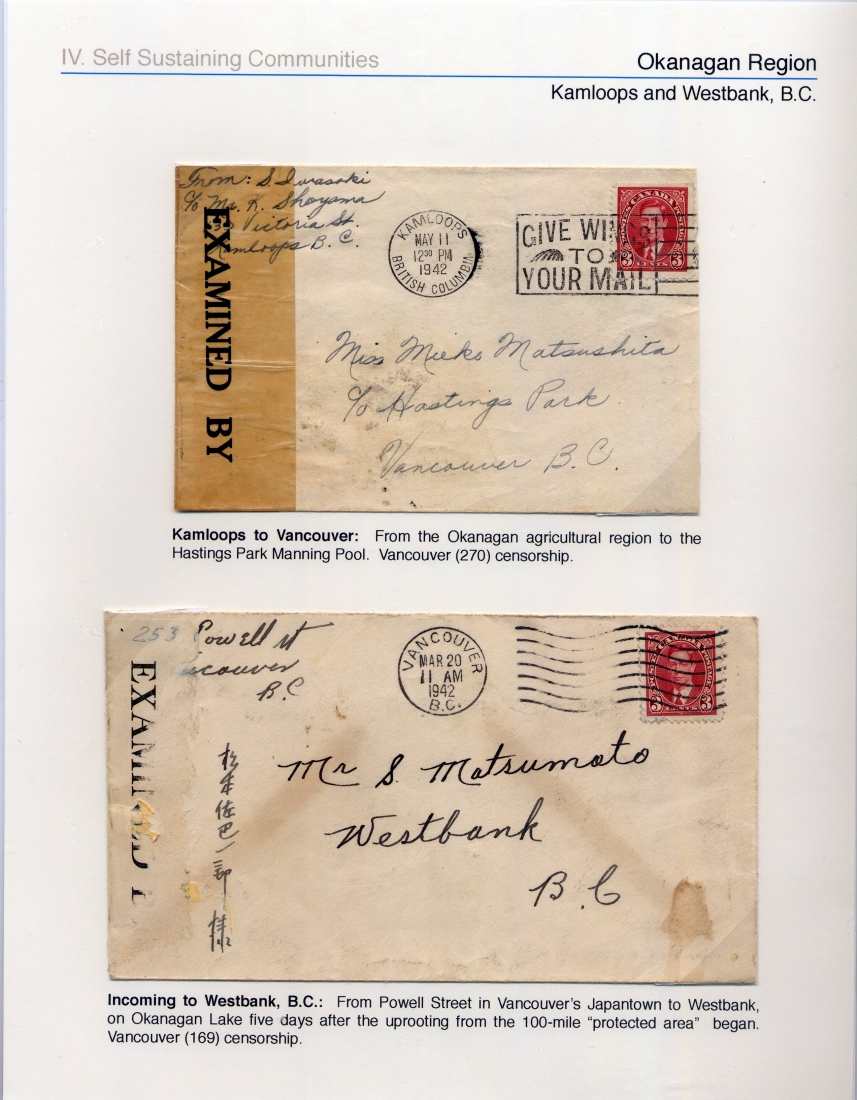 IV. Self Sustaining Communities
Okanagan Region
Kamloops and Westbank, B.C.
From: S. Iwasaki
c/o Mr. K. Shoyama
Victoria St.
Kamloops B. C.
EXAMINED BY
KAMLOOPS
MAY 11
12 30 PM
1942
BRITISH COLUMBIA
GIVE WINGS
TO
YOUR MAIL
POSTES CANADA POSTAGE
3 CENTS 3
Miss Mieko Matsushita
c/o Hastings Park
Vancouver B. C.
Kamloops to Vancouver: From the Okanagan agricultural region to the
Hastings Park Manning Pool. Vancouver (270) censorship.
253 Powell st
Vancouver
B.C
EXAMINED
VANCOUVER
MAR 20
11 AM
1942
B.C.
POSTES CANADA POSTAGE
3 CENTS 3
松本佐巴一郎様
Mr S. Matsumoto
Westbank
B.C
Incoming to Westbank, B.C.: From Powell Street in Vancouver's Japantown to Westbank,
on Okanagan Lake five days after the uprooting from the 100-mile “protected area” began.
Vancouver (169) censorship.